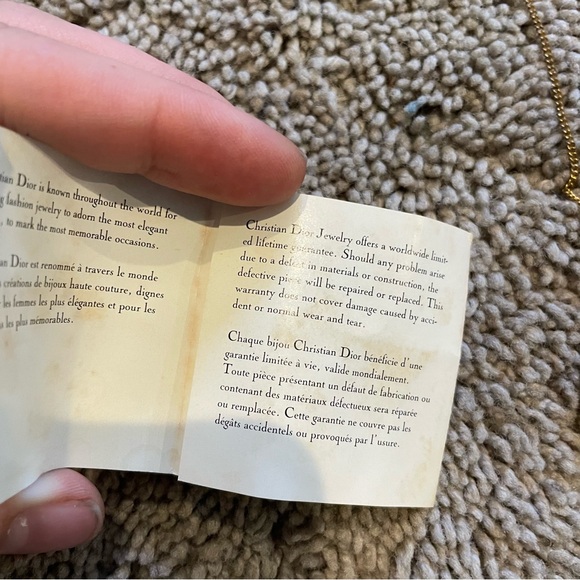 Dior is known throughout the world for
fashion jewelry to adorn the most elegant
to mark the most memorable occasions.
Dior est renommé à travers le monde
créations de bijoux haute couture, dignes
les femmes les plus élégantes et pour les
les plus mémorables.
Christian Dior Jewelry offers a worldwide limit-
ed lifetime guarantee. Should any problem arise
due to a defect in materials or construction, the
defective piece will be repaired or replaced. This
warranty does not cover damage caused by acci-
dent or normal wear and tear.
Chaque bijou Christian Dior bénéficie d'une
garantie limitée à vie, valide mondialement.
Toute pièce présentant un défaut de fabrication ou
contenant des matériaux défectueux sera réparée
ou remplacée. Cette garantie ne couvre pas les
dégâts accidentels ou provoqués par l'usure.